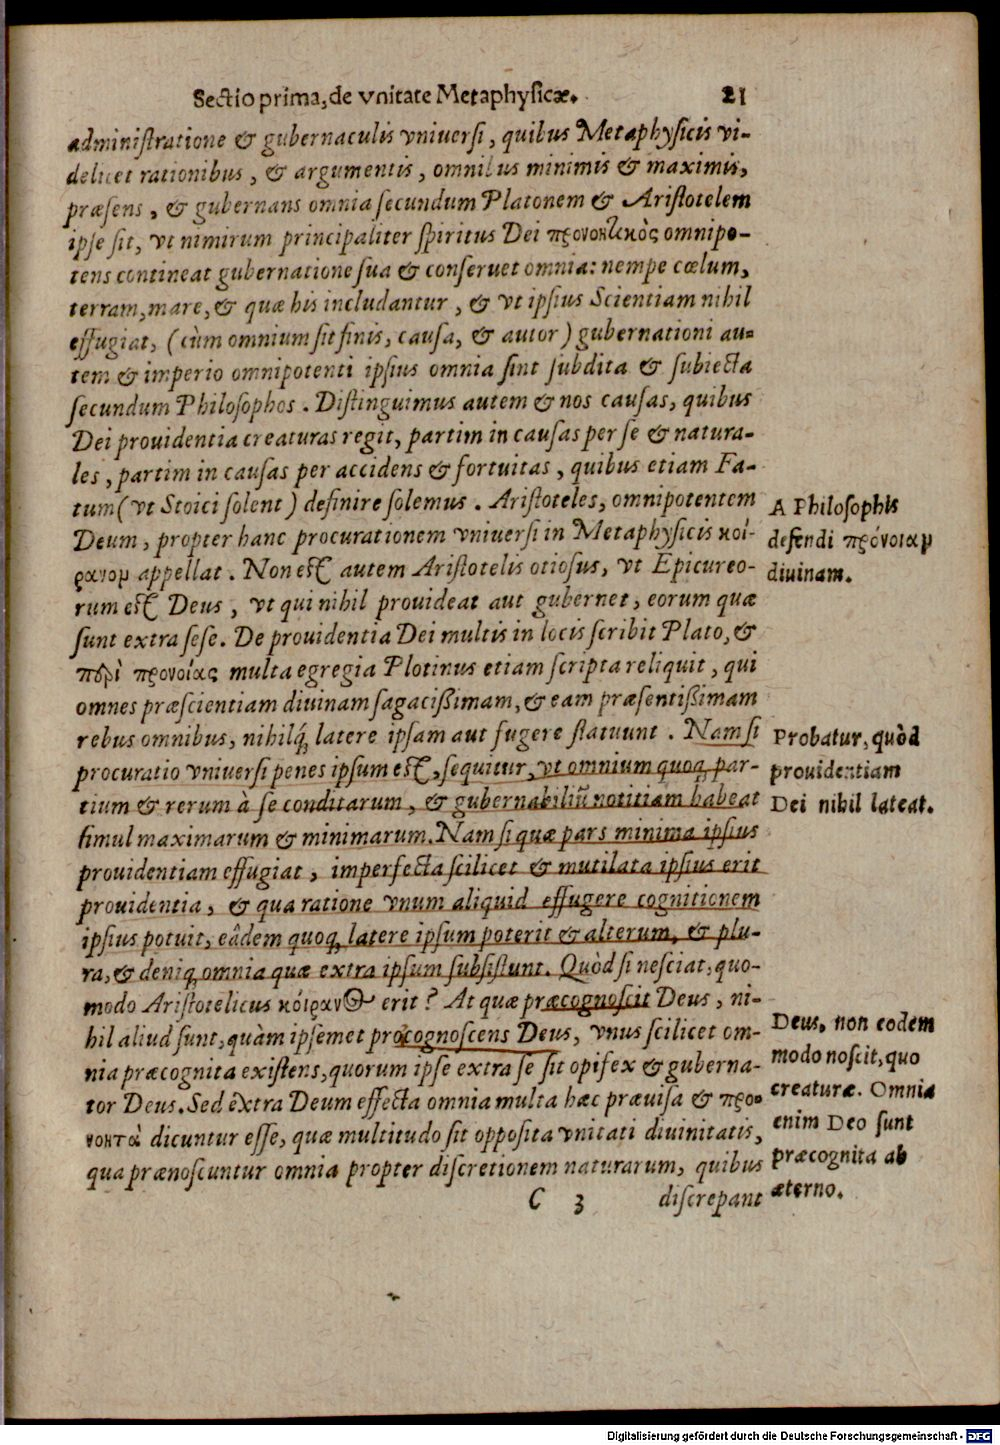 Sectio prima, de vnitate Metaphysicæ. 21
administratione & gubernaculis vniuersi, quibus Metaphysicis vi-
delicet rationibus, & argumentis, omnibus minimis & maximis,
præsens, & gubernans omnia secundum Platonem & Aristotelem
ipse sit, vt nimirum principaliter spiritus Dei προνοητικὸς omnipo-
tens contineat gubernatione sua & conseruet omnia: nempe cœlum,
terram, mare, & quæ his includantur, & vt ipsius Scientiam nihil
effugiat, (cùm omnium sit finis, causa, & autor) gubernationi au-
tem & imperio omnipotenti ipsius omnia sint subdita & subiecta
secundum Philosophos. Distinguimus autem & nos causas, quibus
Dei prouidentia creaturas regit, partim in causas per se & natura-
les, partim in causas per accidens & fortuitas, quibus etiam Fa-
tum (vt Stoici solent) definire solemus. Aristoteles, omnipotentem
Deum, propter hanc procurationem vniuersi in Metaphysicis κοί-
ρανον appellat. Non est autem Aristotelis otiosus, vt Epicureo-
rum est Deus, vt qui nihil prouideat aut gubernet, eorum quæ
sunt extra sese. De prouidentia Dei multis in locis scribit Plato, &
περὶ προνοίας multa egregia Plotinus etiam scripta reliquit, qui
omnes præscientiam diuinam sagacißimam, & eam præsentißimam
rebus omnibus, nihilq́; latere ipsam aut fugere statuunt. Nam si
procuratio vniuersi penes ipsum est, sequitur, vt omnium quoq; par-
tium & rerum à se conditarum, & gubernabiliũ notitiam habeat
simul maximarum & minimarum. Nam si quæ pars minima ipsius
prouidentiam effugiat, imperfecta scilicet & mutilata ipsius erit
prouidentia, & qua ratione vnum aliquid effugere cognitionem
ipsius potuit, eâdem quoq; latere ipsum poterit & alterum, & plu-
ra, & deniq; omnia quæ extra ipsum subsistunt. Quòd si nesciat, quo-
modo Aristotelicus κόιρανος erit? At quæ præcognoscit Deus, ni-
hil aliud sunt, quàm ipsemet procognoscens Deus, vnus scilicet om-
nia præcognita existens, quorum ipse extra se sit opifex & guberna-
tor Deus. Sed extra Deum effecta omnia multa hæc præuisa & προ-
νοητὰ dicuntur esse, quæ multitudo sit opposita vnitati diuinitatis,
qua prænoscuntur omnia propter discretionem naturarum, quibus
C 3 discrepant
A Philosophis
defendi πρόνοιαν
diuinam.
Probatur, quòd
prouidentiam
Dei nihil lateat.
Deus, non eodem
modo noscit, quo
creaturæ. Omnia
enim Deo sunt
præcognita ab
æterno.
Digitalisierung gefördert durch die Deutsche Forschungsgemeinschaft - DFG